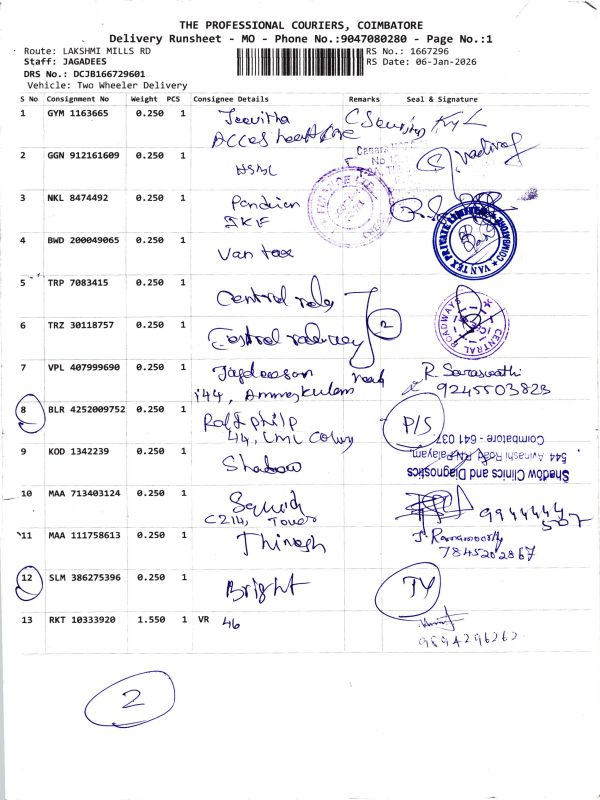 THE PROFESSIONAL COURIERS, COIMBATORE
Delivery Runsheet - MO - Phone No.:9047080280 - Page No.:1
Route: LAKSHMI MILLS RD
RS No.: 1667296
Staff: JAGADEES
RS Date: 06-Jan-2026
DRS No.: DCJB166729601
Vehicle: Two Wheeler Delivery
S No Consignment No Weight PCS Consignee Details Remarks Seal & Signature
1 GYM 1163665 0.250 1 Jeevitha
2 GGN 912161609 0.250 1 HSBC
3 NKL 8474492 0.250 1 Pandian
SKF
4 BWD 200049065 0.250 1 Van tex
VAN TEX PRIVATE LIMITED COIMBATORE
5 TRP 7083415 0.250 1 Central
2
6 TRZ 30118757 0.250 1
CENTRAL ROADWAYS
7 VPL 407999690 0.250 1 Jagdeesan R. Saraswathi
144, Ammankulam 9245503823
8 BLR 4252009752 0.250 1 P/S
44,
9 KOD 1342239 0.250 1 Shadow
Shadow Clinics and Diagnostics
544 Avinashi Road, RN Palayam,
Coimbatore - 641 037.
10 MAA 713403124 0.250 1 Squid 9944444507
C214, Tower
11 MAA 111758613 0.250 1 Thinesh J. Ramamoorthy
7845202867
12 SLM 386275396 0.250 1 Bright
13 RKT 10333920 1.550 1 VR 46
9894296262
2